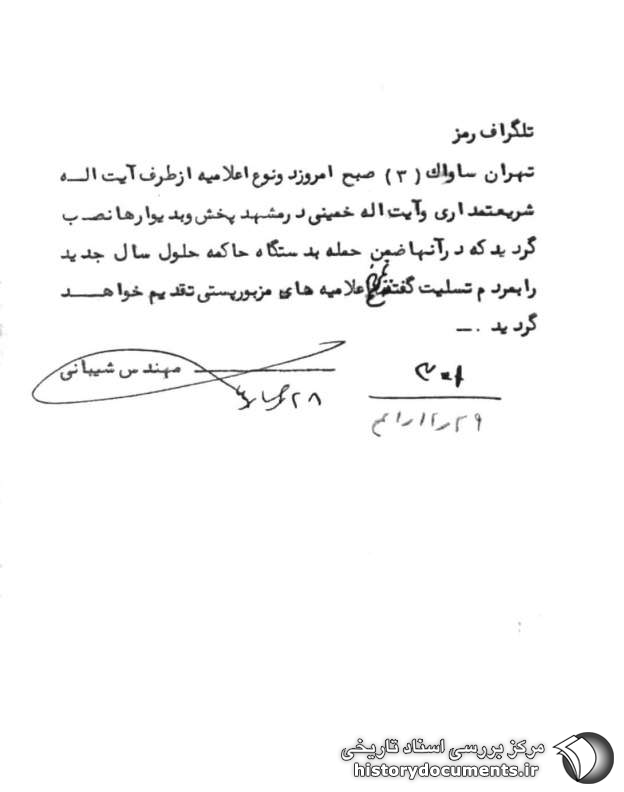 تلگراف رمز
تهران ساواك (۳) صبح امروز دو نوع اعلامیه از طرف آیت اله
شریعتمداری وآیت اله خمینی در مشهد پخش وبدیوارها نصب
گردید که در آنها ضمن حمله بدستگاه حاکمه حلول سال جدید
را بمردم تسلیت گفته اعلامیه های مزبور پستی تقدیم خواهد
گردید .ــ
مهندس شیبانی
۲۸
مرکز بررسی اسناد تاریخی
historydocuments.ir